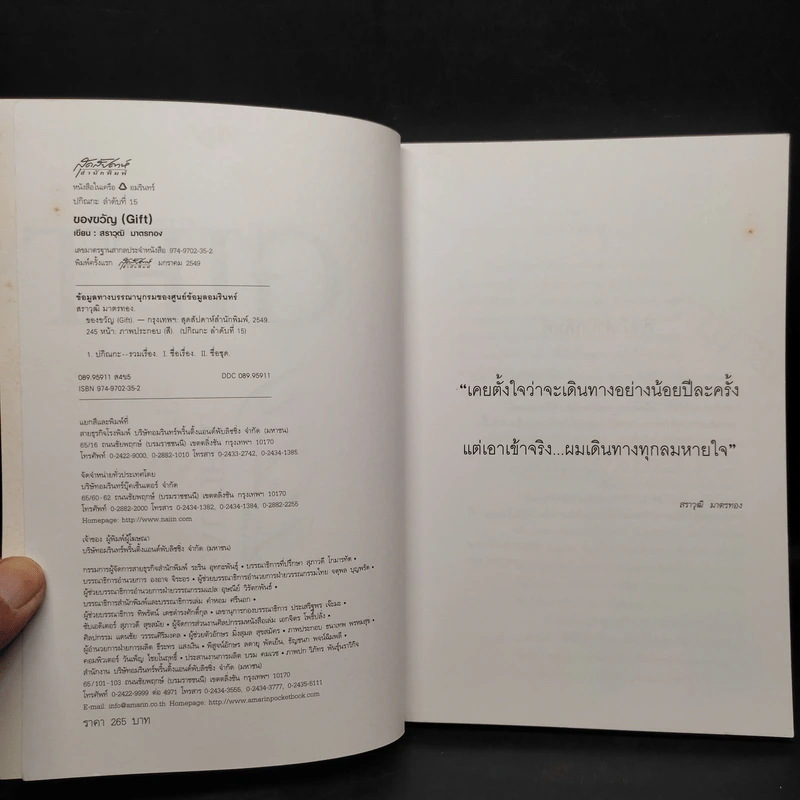 สุดสัปดาห์
สำนักพิมพ์
หนังสือในเครือ อมรินทร์
ปกิณกะ ลำดับที่ 15
ของขวัญ (Gift)
เขียน : สราวุฒิ มาตรทอง
เลขมาตรฐานสากลประจำหนังสือ 974-9702-35-2
พิมพ์ครั้งแรก สุดสัปดาห์ มกราคม 2549
ข้อมูลทางบรรณานุกรมของศูนย์ข้อมูลอมรินทร์
สราวุฒิ มาตรทอง.
ของขวัญ (Gift). — กรุงเทพฯ: สุดสัปดาห์สำนักพิมพ์, 2549.
245 หน้า: ภาพประกอบ (สี). (ปกิณกะ ลำดับที่ 15)
1. ปกิณกะ--รวมเรื่อง. I. ชื่อเรื่อง. II. ชื่อชุด.
089.95911 ส4ข5 DDC 089.95911
ISBN 974-9702-35-2
แยกสีและพิมพ์ที่
สายธุรกิจโรงพิมพ์ บริษัทอมรินทร์พริ้นติ้งแอนด์พับลิชชิ่ง จำกัด (มหาชน)
65/16 ถนนชัยพฤกษ์ (บรมราชชนนี) เขตตลิ่งชัน กรุงเทพฯ 10170
โทรศัพท์ 0-2422-9000, 0-2882-1010 โทรสาร 0-2433-2742, 0-2434-1385
จัดจำหน่ายทั่วประเทศโดย
บริษัทอมรินทร์บุ๊คเซ็นเตอร์ จำกัด
65/60-62 ถนนชัยพฤกษ์ (บรมราชชนนี) เขตตลิ่งชัน กรุงเทพฯ 10170
โทรศัพท์ 0-2882-2000 โทรสาร 0-2434-1382, 0-2434-1384, 0-2882-2255
Homepage: http://www.naiin.com
เจ้าของ ผู้พิมพ์ผู้โฆษณา
บริษัทอมรินทร์พริ้นติ้งแอนด์พับลิชชิ่ง จำกัด (มหาชน)
กรรมการผู้จัดการสายธุรกิจสำนักพิมพ์ ระริน อุทกะพันธุ์ • บรรณาธิการที่ปรึกษา สุภาวดี โกมารทัต •
บรรณาธิการอำนวยการ องอาจ จิระอร • ผู้ช่วยบรรณาธิการอำนวยการฝ่ายวรรณกรรมไทย จตุพล บุญพรัด •
ผู้ช่วยบรรณาธิการอำนวยการฝ่ายวรรณกรรมแปล อุษณีย์ วิรัตกพันธ์ •
บรรณาธิการสำนักพิมพ์และบรรณาธิการเล่ม คำหอม ศรีนอก •
ผู้ช่วยบรรณาธิการ ทิพรัตน์ เดชดำรงศักดิ์กุล • เลขานุการกองบรรณาธิการ ประเสริฐพร เจ๊ะมะ •
ซับเอดิเตอร์ สุภาวดี สุขสมัย • ผู้จัดการส่วนงานศิลปกรรมหนังสือเล่ม เอกจิตร โพธิ์ปลั่ง •
ศิลปกรรม แดนชัย วรรณศิริมงคล • ผู้ช่วยตัวอักษร มิ่งสุมล สุขสมัคร • ภาพประกอบ ธนาเทพ พรหมสุข •
ผู้อำนวยการฝ่ายการผลิต ธีระทร แสงเงิน • พิสูจน์อักษร ลดายุ พัดเย็น, ธัญชนก พจน์ฉิมพลี •
คอมพิวเตอร์ วันเพ็ญ ไชยในฤทธิ์ • ประสานงานการผลิต บรม คมเวช • ภาพปก วิภัทร พันธุ์นราวีกิจ
สำนักงาน บริษัทอมรินทร์พริ้นติ้งแอนด์พับลิชชิ่ง จำกัด (มหาชน)
65/101-103 ถนนชัยพฤกษ์ (บรมราชชนนี) เขตตลิ่งชัน กรุงเทพฯ 10170
โทรศัพท์ 0-2422-9999 ต่อ 4971 โทรสาร 0-2434-3555, 0-2434-3777, 0-2435-5111
E-mail: info@amarin.co.th Homepage: http://www.amarinpocketbook.com
ราคา 265 บาท
"เคยตั้งใจว่าจะเดินทางอย่างน้อยปีละครั้ง
แต่เอาเข้าจริง...ผมเดินทางทุกลมหายใจ"
สราวุฒิ มาตรทอง